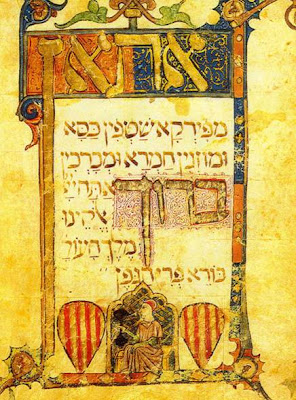 אתא
מפירקא שטפין כסא
ומוזגין חמרא ומברכין
ברוך אתה יי
אלהינו
מלך העול
בורא פרי הגפן